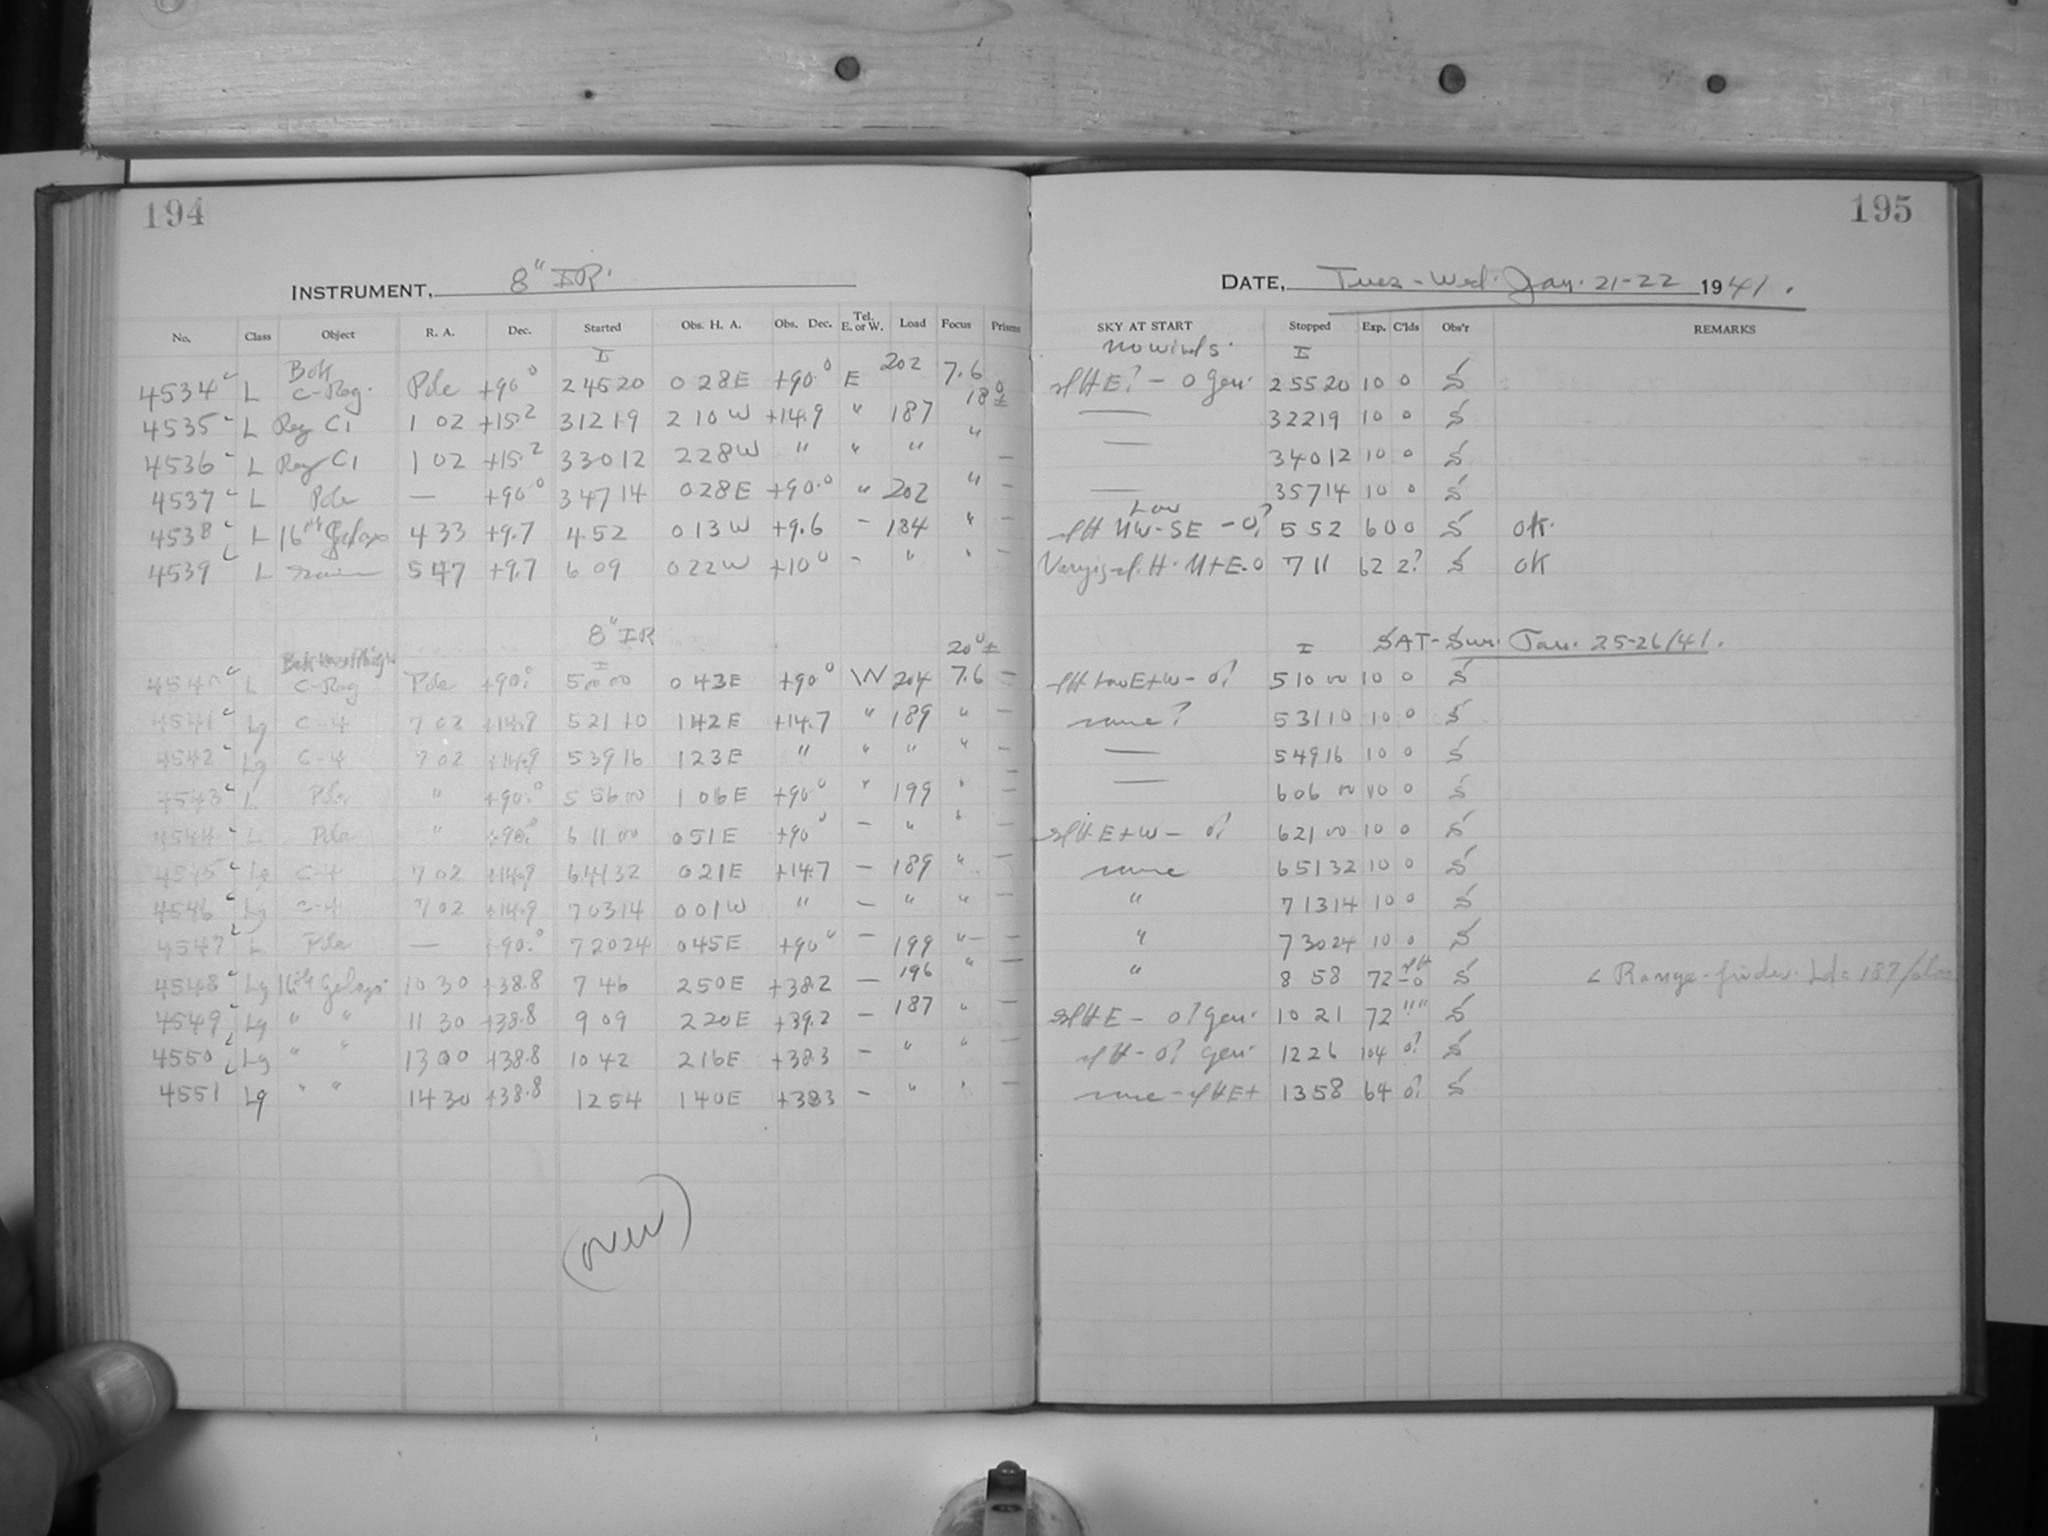 194
INSTRUMENT, 8" IR.
No. Class Object R. A. Dec. Started Obs. H. A. Obs. Dec. Tel. E. or W. Load Focus Prisms
I
Bok
4534 L C-Reg. Pole +90.0 2 45 20 0 28 E +90.0 E 202 7.6
18.0 ±
4535 L Reg C1 1 02 +15.2 3 12 19 2 10 W +14.9 " 187 "
4536 L Reg C1 1 02 +15.2 3 30 12 2 28 W " " " —
4537 L Pole — +90.0 3 47 14 0 28 E +90.0 " 202 " —
4538 L 16th Galaxs 4 33 +9.7 4 52 0 13 W +9.6 – 184 " —
4539 L 5 47 +9.7 6 09 0 22 W +10.0 – " " —
8" IR
20.0 ±
I
4540 L C-Reg Pole +90.0 5 00 00 0 43 E +90.0 W 204 7.6 —
4541 Lg C-4 7 02 +14.9 5 21 10 1 42 E +14.7 " 189 " —
4542 Lg C-4 7 02 +14.9 5 39 16 1 23 E " " " " —
4543 L Pole " +90.0 5 56 00 1 06 E +90.0 " 199 " —
4544 L Pole " +90.0 6 11 00 0 51 E +90.0 – " "
4545 Lg C-4 7 02 +14.9 6 41 32 0 21 E +14.7 – 189 " —
4546 Lg C-4 7 02 +14.9 7 03 14 0 01 W " – " " —
4547 L Pole — +90.0 7 20 24 0 45 E +90.0 – 199 " —
4548 Lg 16th Galaxs 10 30 +38.8 7 46 2 50 E +38.2 – 196 " —
4549 Lg " " 11 30 +38.8 9 09 2 20 E +39.2 – 187 "
4550 Lg " " 13 00 +38.8 10 42 2 16 E +38.3 – " " —
4551 Lg " " 14 30 +38.8 12 54 1 40 E +38.3 – " " —
(over)
195
DATE, Tues - Wed. Jan. 21-22 1941.
SKY AT START Stopped Exp. C'lds Obs'r REMARKS
No winds. I
slHE? - 0 Gen. 2 55 20 10 0 S
— 3 22 19 10 0 S
— 3 40 12 10 0 S
— 3 57 14 10 0 S
Low
slH NW-SE - 0? 5 52 60 0 S OK.
Varying sl. H. N+E. 0 7 11 62 2? S OK
I SAT-Sun. Jan. 25-26/41.
slH Low E+W - 0? 5 10 00 10 0 S
same? 5 31 10 10 0 S
— 5 49 16 10 0 S
— 6 06 00 10 0 S
slH E+W - 0? 6 21 00 10 0 S
same 6 51 32 10 0 S
" 7 13 14 10 0 S
" 7 30 24 10 0 S
" 8 58 72 slH-0 S < Range-finder. Ld = 187/
slHE - 0? Gen. 10 21 72 " " S
slH - 0? Gen. 12 26 104 0? S
same - slHE+ 13 58 64 0? S